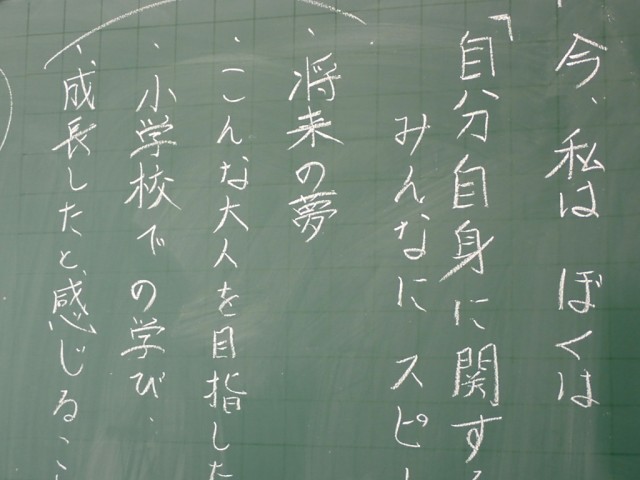 今、私は ぼくは
「自分自身に関する
みんなに スピー
・将来の夢
・こんな大人を目指した
・小学校での学び、
・成長したと感じるこ